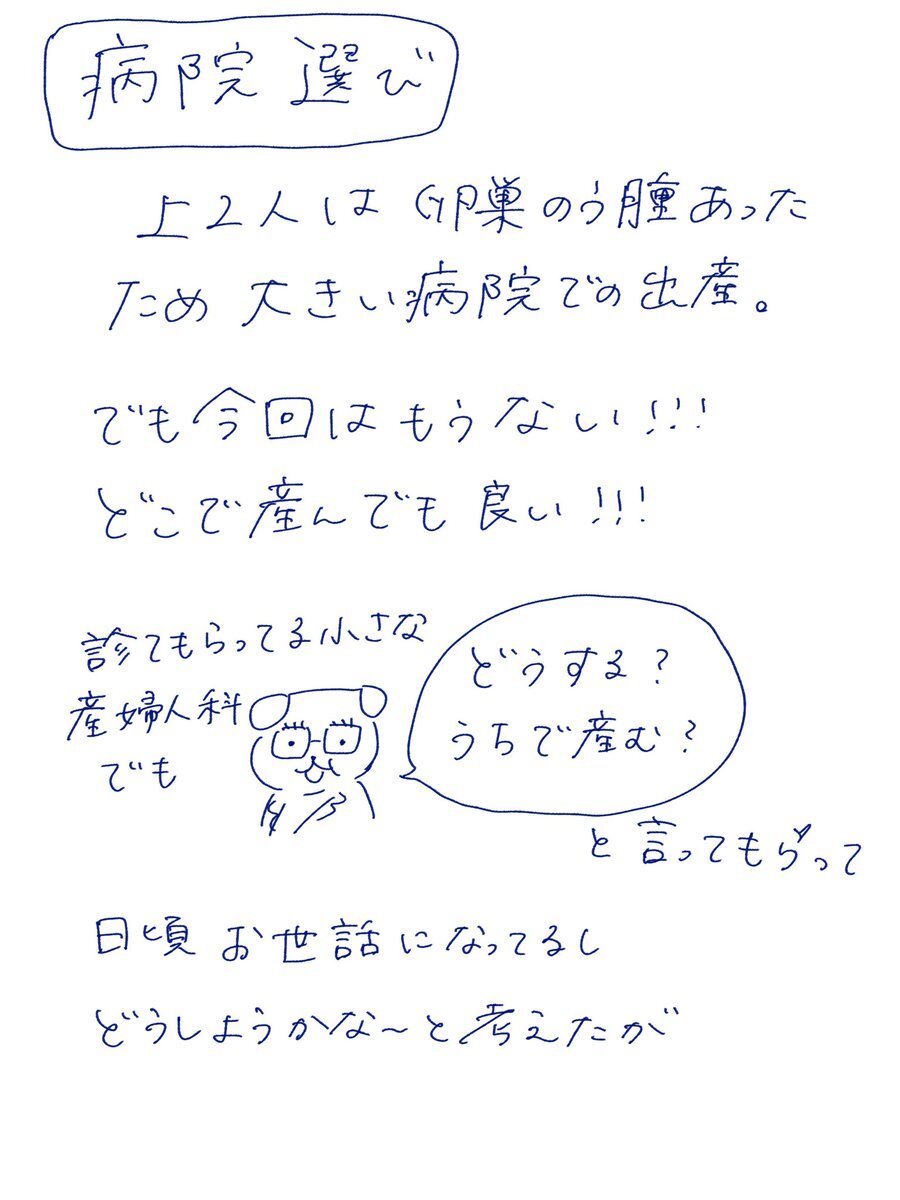 病院選び
上2人は卵巣のう腫あった
ため大きい病院での出産。
でも今回はもうない!!!
どこで産んでも良い!!!
診てもらってる小さな
産婦人科
でも
どうする?
うちで産む?
と言ってもらって
日頃お世話になってるし
どうしようかな〜と考えたが